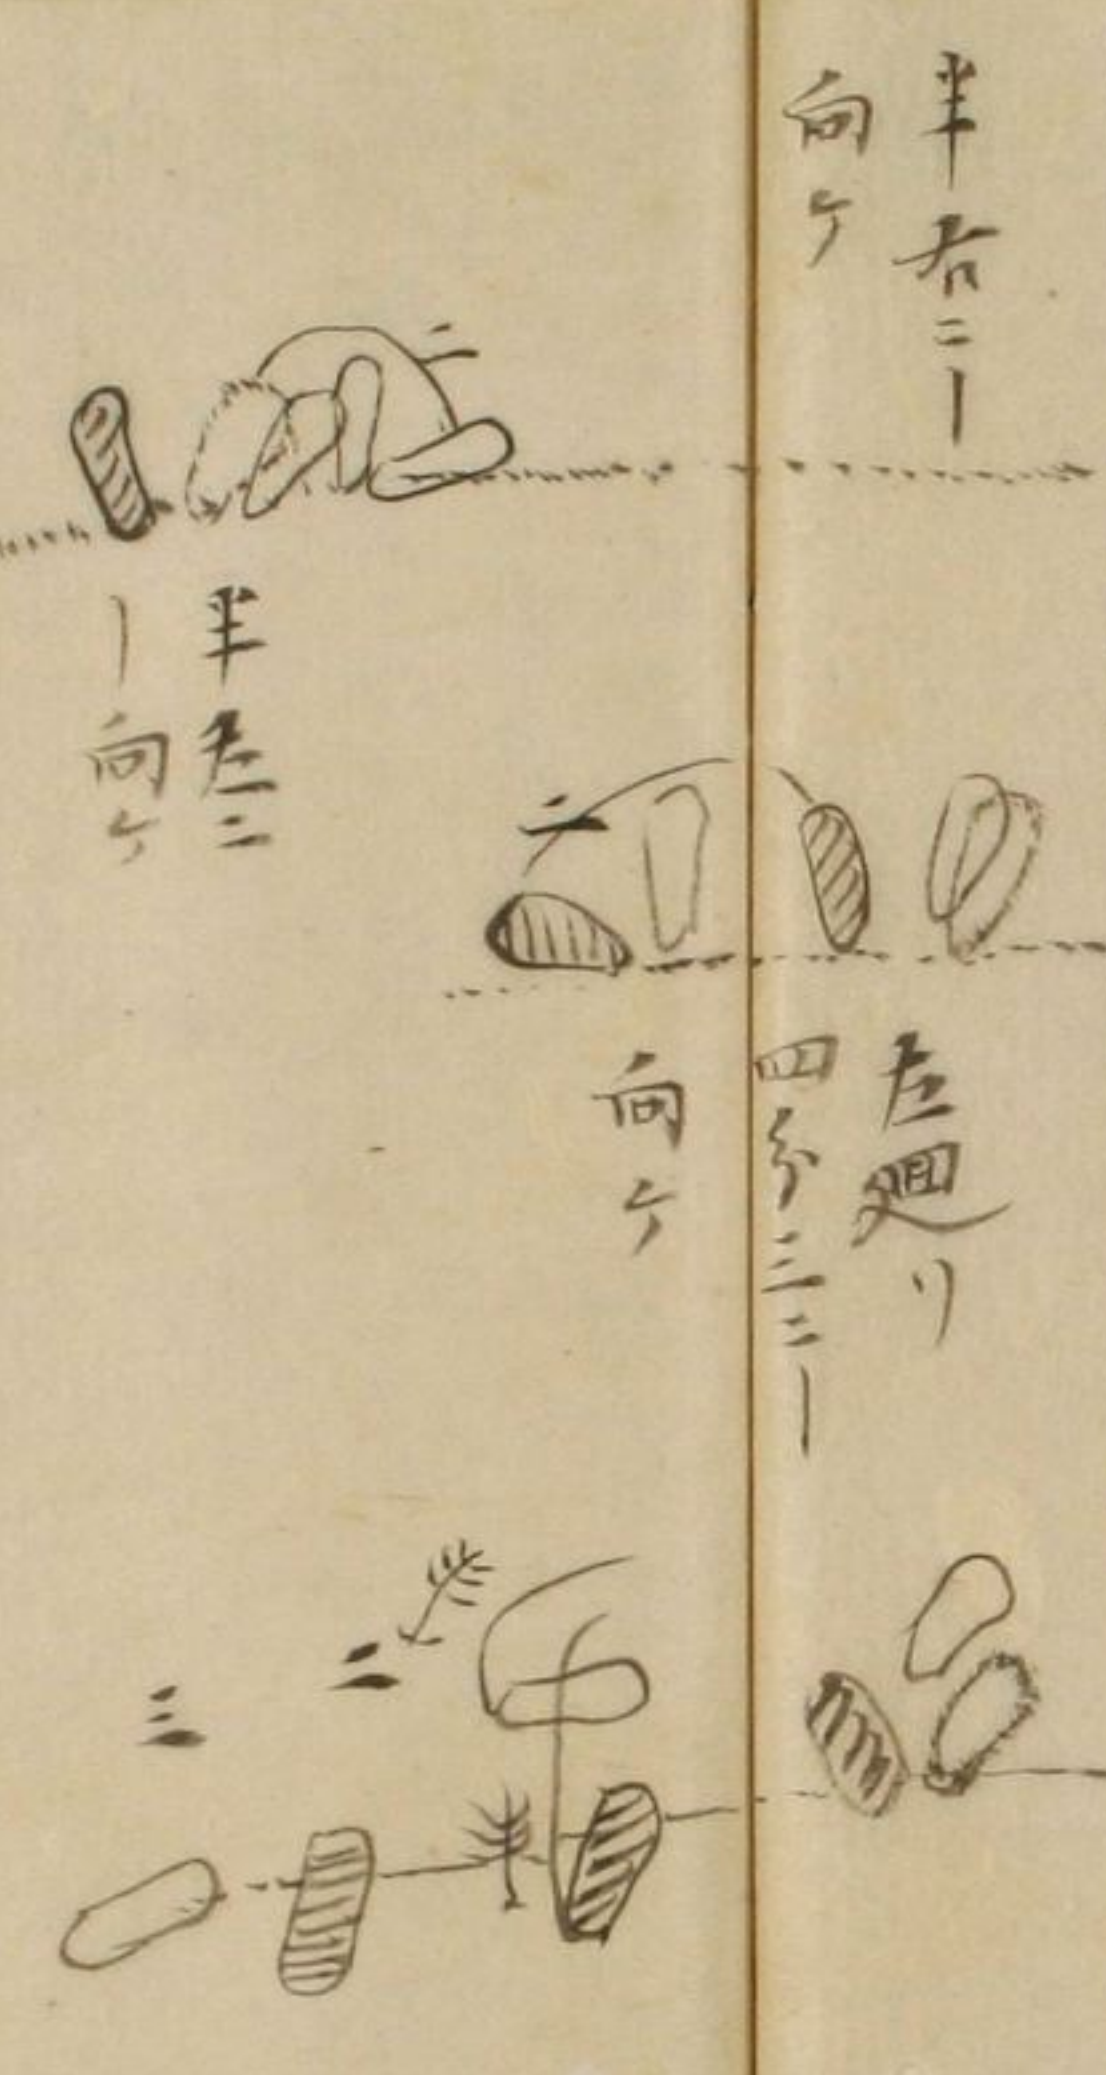 半右ニー
向ケ
二
半左ニ
ー向ケ
二
左廻リ
四分三ニー
向ケ
二
三